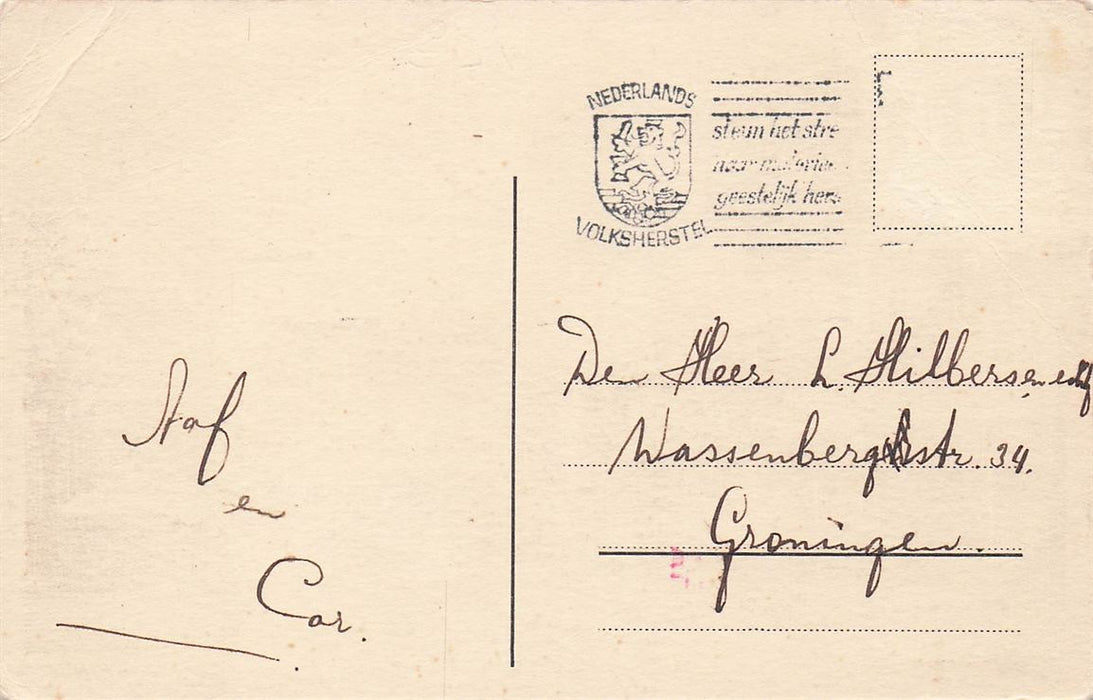 NEDERLANDS
VOLKSHERSTEL
steun het stre
naar materiee
geestelijk hers
Den Heer L. Hilbers en echtg
Wassenberghstr. 34.
Groningen.
Aaf
en
Cor.